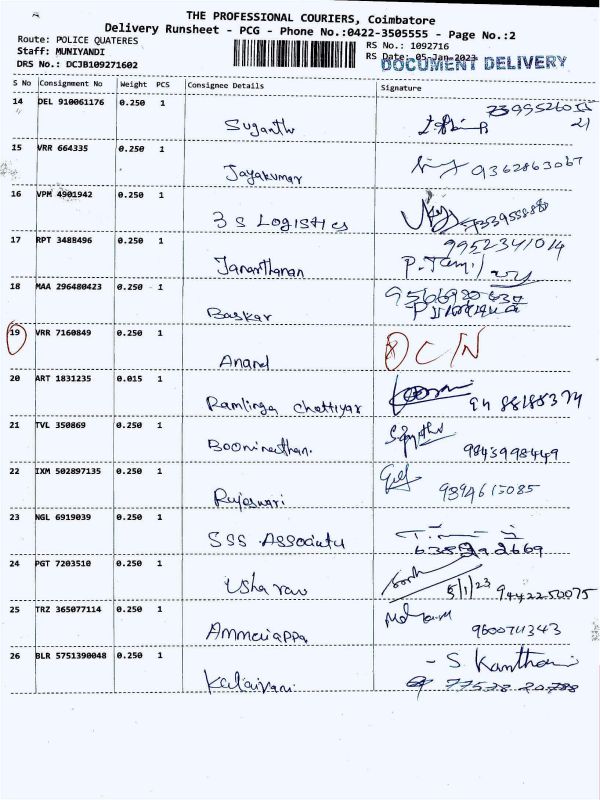 THE PROFESSIONAL COURIERS, Coimbatore
Delivery Runsheet - PCG - Phone No.:0422-3505555 - Page No.:2
Route: POLICE QUATERES
RS No.: 1092716
Staff: MUNIYANDI
RS Date: 05-Jan-2023
DRS No.: DCJB109271602
DOCUMENT DELIVERY
S No Consignment No Weight PCS Consignee Details Signature
14 DEL 910061176 0.250 1
Suganthi
21
15 VRR 664335 0.250 1
Jayakumar 9362863067
16 VPM 4901942 0.250 1
3 S Logistics
17 RPT 3488496 0.250 1 9952341014
Jananthanan
18 MAA 296480423 0.250 1
Baskar
19 VRR 7160849 0.250 1
Anand C/N
20 ART 1831235 0.015 1
Ramlinga Chettiyar
21 TVL 350869 0.250 1
9843998449
22 IXM 502897135 0.250 1
Rajeswari 9394615085
23 NGL 6919039 0.250 1
SSS Associats
24 PGT 7203510 0.250 1
Usha rau 5/1/23 9442250075
25 TRZ 365077114 0.250 1
Ammaiappa 9600711343
26 BLR 5751390048 0.250 1
- S. Kanthan
Kalaivani